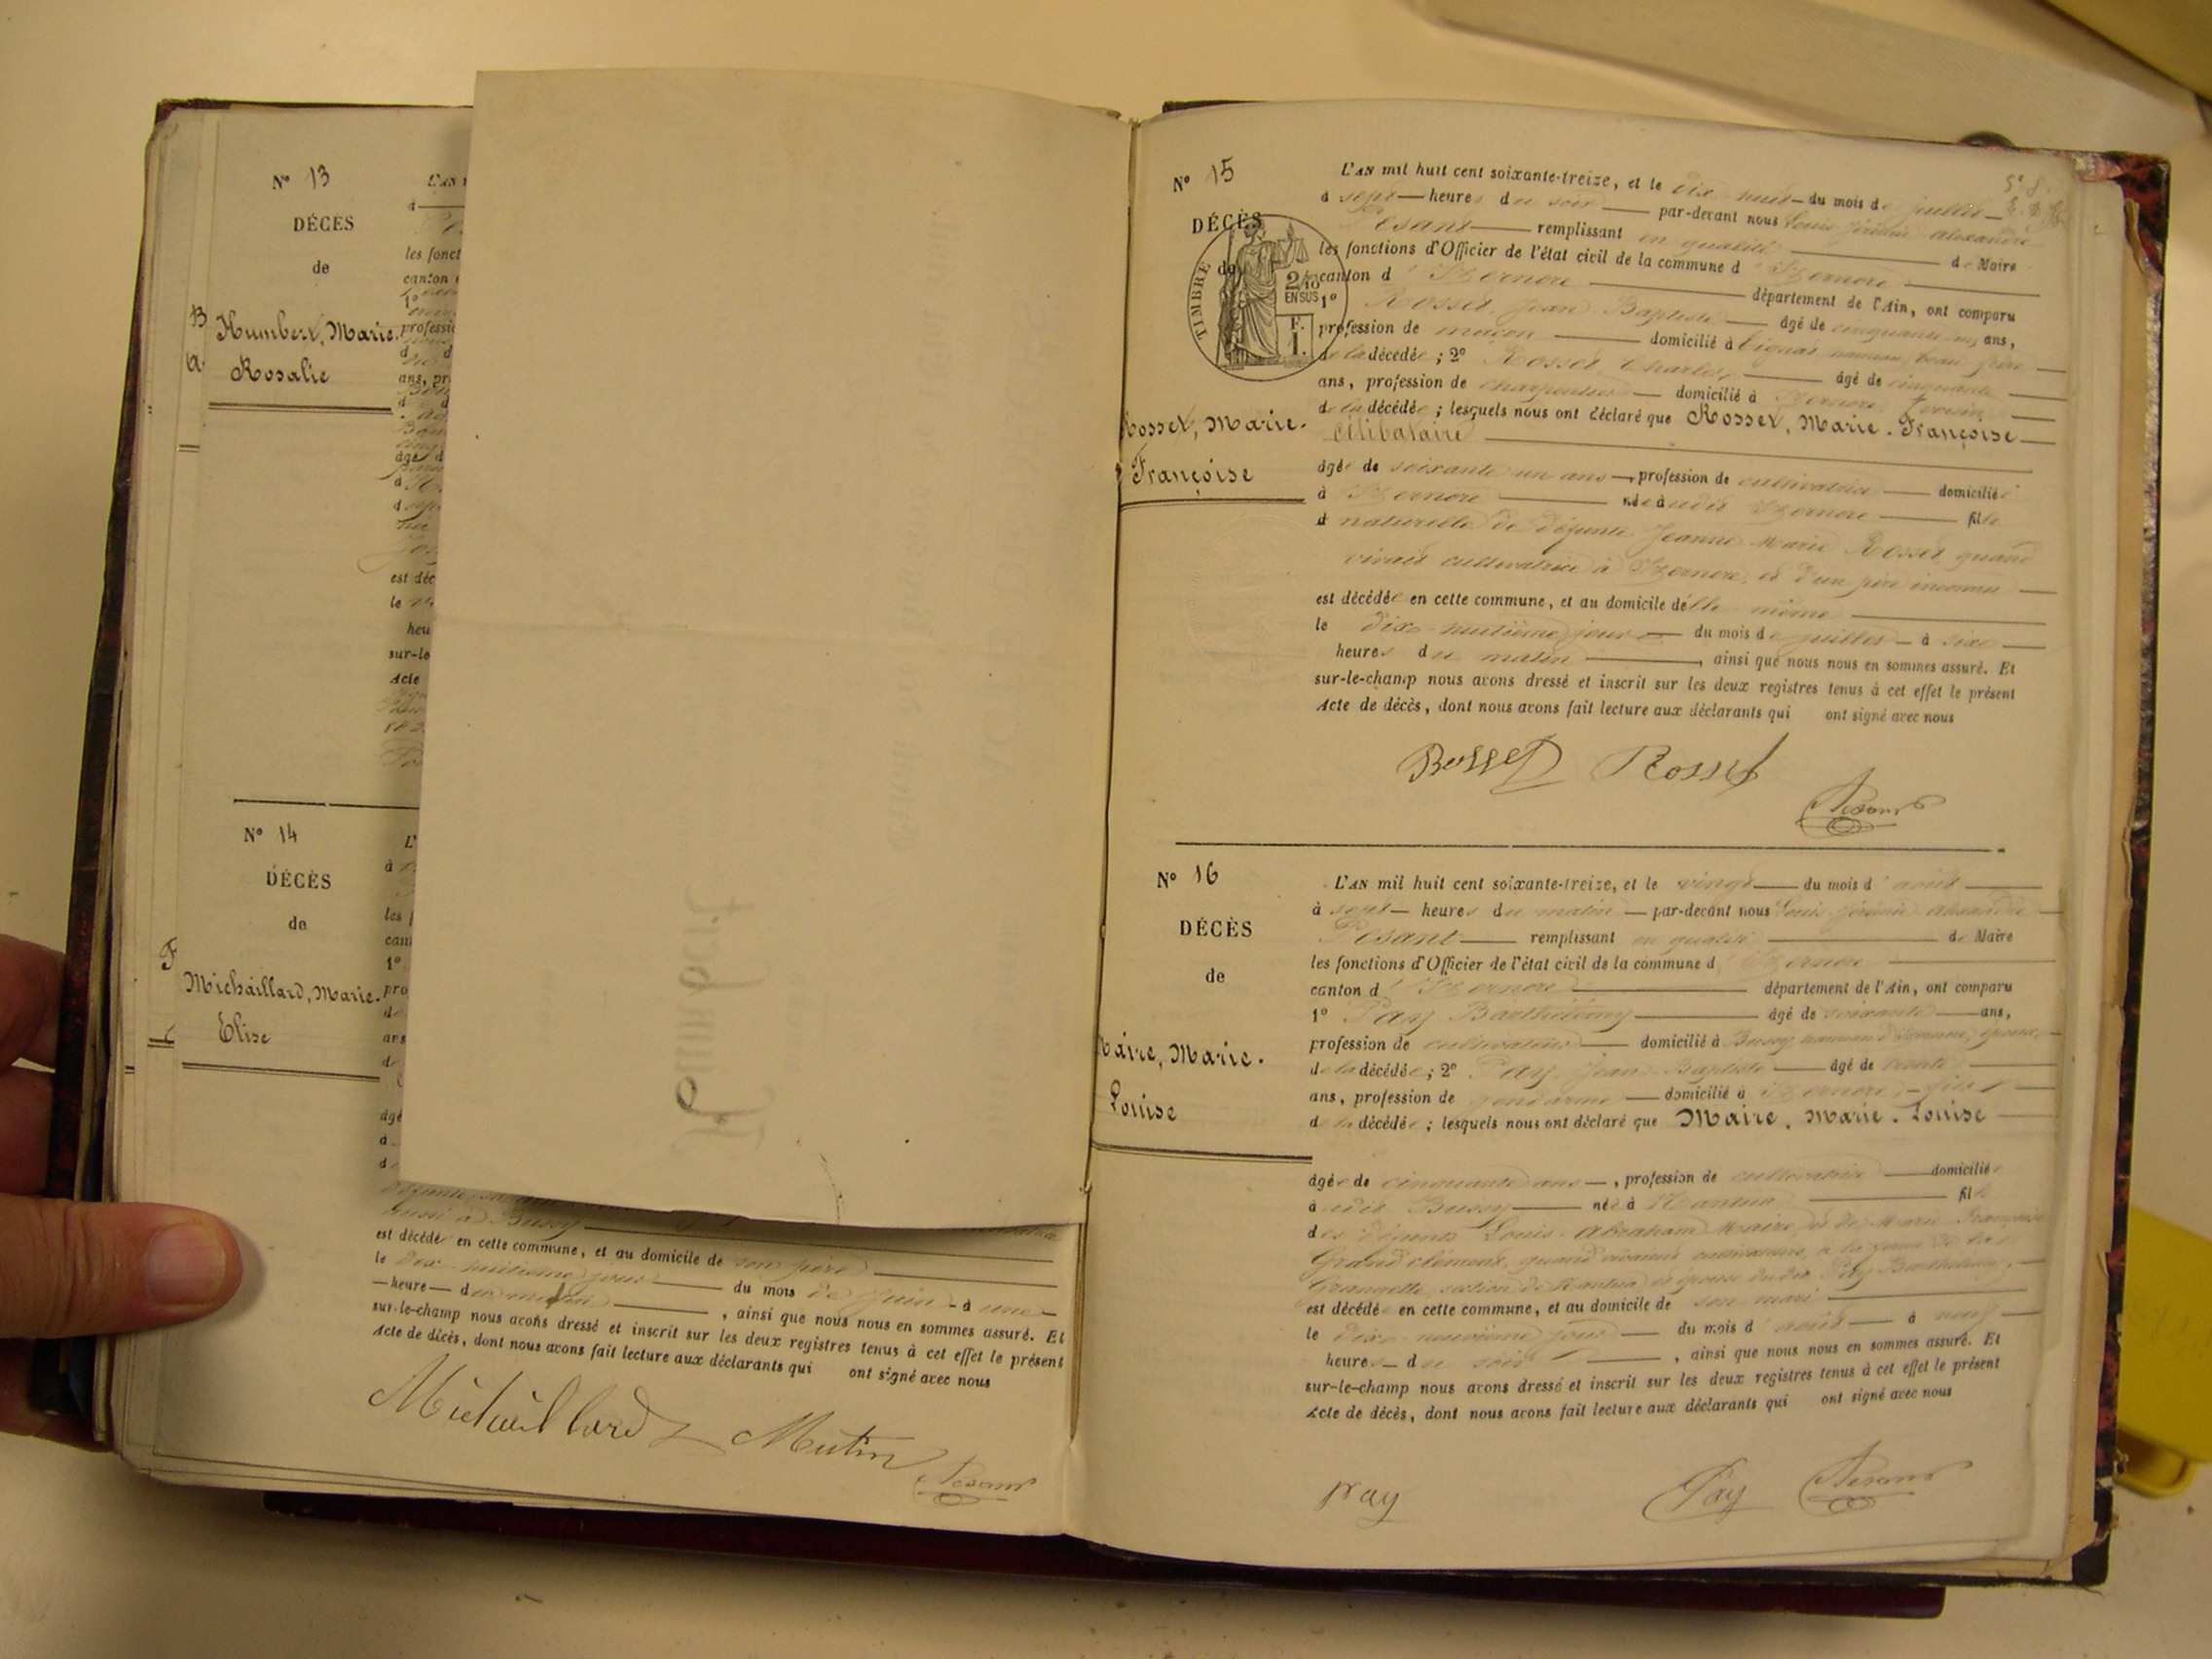 Nº 13
DÉCÈS
de
B
Humbert, Marie.
a.
Rosalie
L'AN
à
les fonct
canton
1º
professi
ans, pr
âgé d
à
est déc
le
heu
sur-le
Acte
Nº 14
DÉCÈS
de
F
Michaillard, Marie.
Elise
L'
à
les
can
1º
pro
de
ans
de
âgé
à
d
Humbert
aussi à Bussy
est décédé en cette commune, et au domicile de son père
le dix-huitième jour du mois de juin à une
heure du matin , ainsi que nous nous en sommes assuré. Et
sur-le-champ nous avons dressé et inscrit sur les deux registres tenus à cet effet le présent
Acte de décès, dont nous avons fait lecture aux déclarants qui ont signé avec nous
Michaillard Mutin Pesant
Nº 15
DÉCÈS
de
TIMBRE
2/10
EN SUS
F.
1.
Rosset, Marie.
Françoise
L'AN mil huit cent soixante-treize, et le dix-huit du mois de juillet
à sept heures du soir par-devant nous Louis Jérémie Alexandre
Pesant remplissant en qualité de Maire
les fonctions d'Officier de l'état civil de la commune d'Izernore
canton d'Izernore département de l'Ain, ont comparu
1º Rosset, Jean Baptiste âgé de cinquante ans,
profession de maçon domicilié à
de la décédée ; 2º Rosset, Charles, âgé de cinquante
ans, profession de charpentier domicilié à Izernore,
de la décédée ; lesquels nous ont déclaré que Rosset, Marie. Françoise
célibataire
âgée de soixante un ans, profession de cultivatrice domiciliée
à Izernore née audit Izernore fille
d naturelle de défunte Jeanne Marie Rosset quand
vivait cultivatrice à Izernore, et d'un père inconnu
est décédée en cette commune, et au domicile d'elle-même
le dix-huitième jour du mois de juillet à six
heures du matin , ainsi que nous nous en sommes assuré. Et
sur-le-champ nous avons dressé et inscrit sur les deux registres tenus à cet effet le présent
Acte de décès, dont nous avons fait lecture aux déclarants qui ont signé avec nous
Rosset Rosset
Pesant
Nº 16
DÉCÈS
de
Maire, Marie.
Louise
L'AN mil huit cent soixante-treize, et le vingt du mois d'août
à sept heures du matin par-devant nous Louis Jérémie Alexandre
Pesant remplissant en qualité de Maire
les fonctions d'Officier de l'état civil de la commune d'Izernore
canton d'Izernore département de l'Ain, ont comparu
1º Pay Barthélemy âgé de soixante ans,
profession de cultivateur domicilié à Bussy hameau d'Izernore, époux
de la décédée ; 2º Pay Jean Baptiste âgé de trente
ans, profession de gendarme domicilié à Izernore, fils
de la décédée ; lesquels nous ont déclaré que Maire, Marie. Louise
âgée de cinquante ans , profession de cultivatrice domiciliée
à dit Bussy née à Nantua fille
des défunts Louis Abraham Maire, et de Marie Françoise
Grand clément, quand vivaient cultivateurs, à la ferme de la
Grangette, section de Nantua et épouse dudit Pay Barthélemy,
est décédée en cette commune, et au domicile de son mari
le dix-neuvième jour du mois d'août à neuf
heures du soir , ainsi que nous nous en sommes assuré. Et
sur-le-champ nous avons dressé et inscrit sur les deux registres tenus à cet effet le présent
Acte de décès, dont nous avons fait lecture aux déclarants qui ont signé avec nous
Pay Pay Pesant